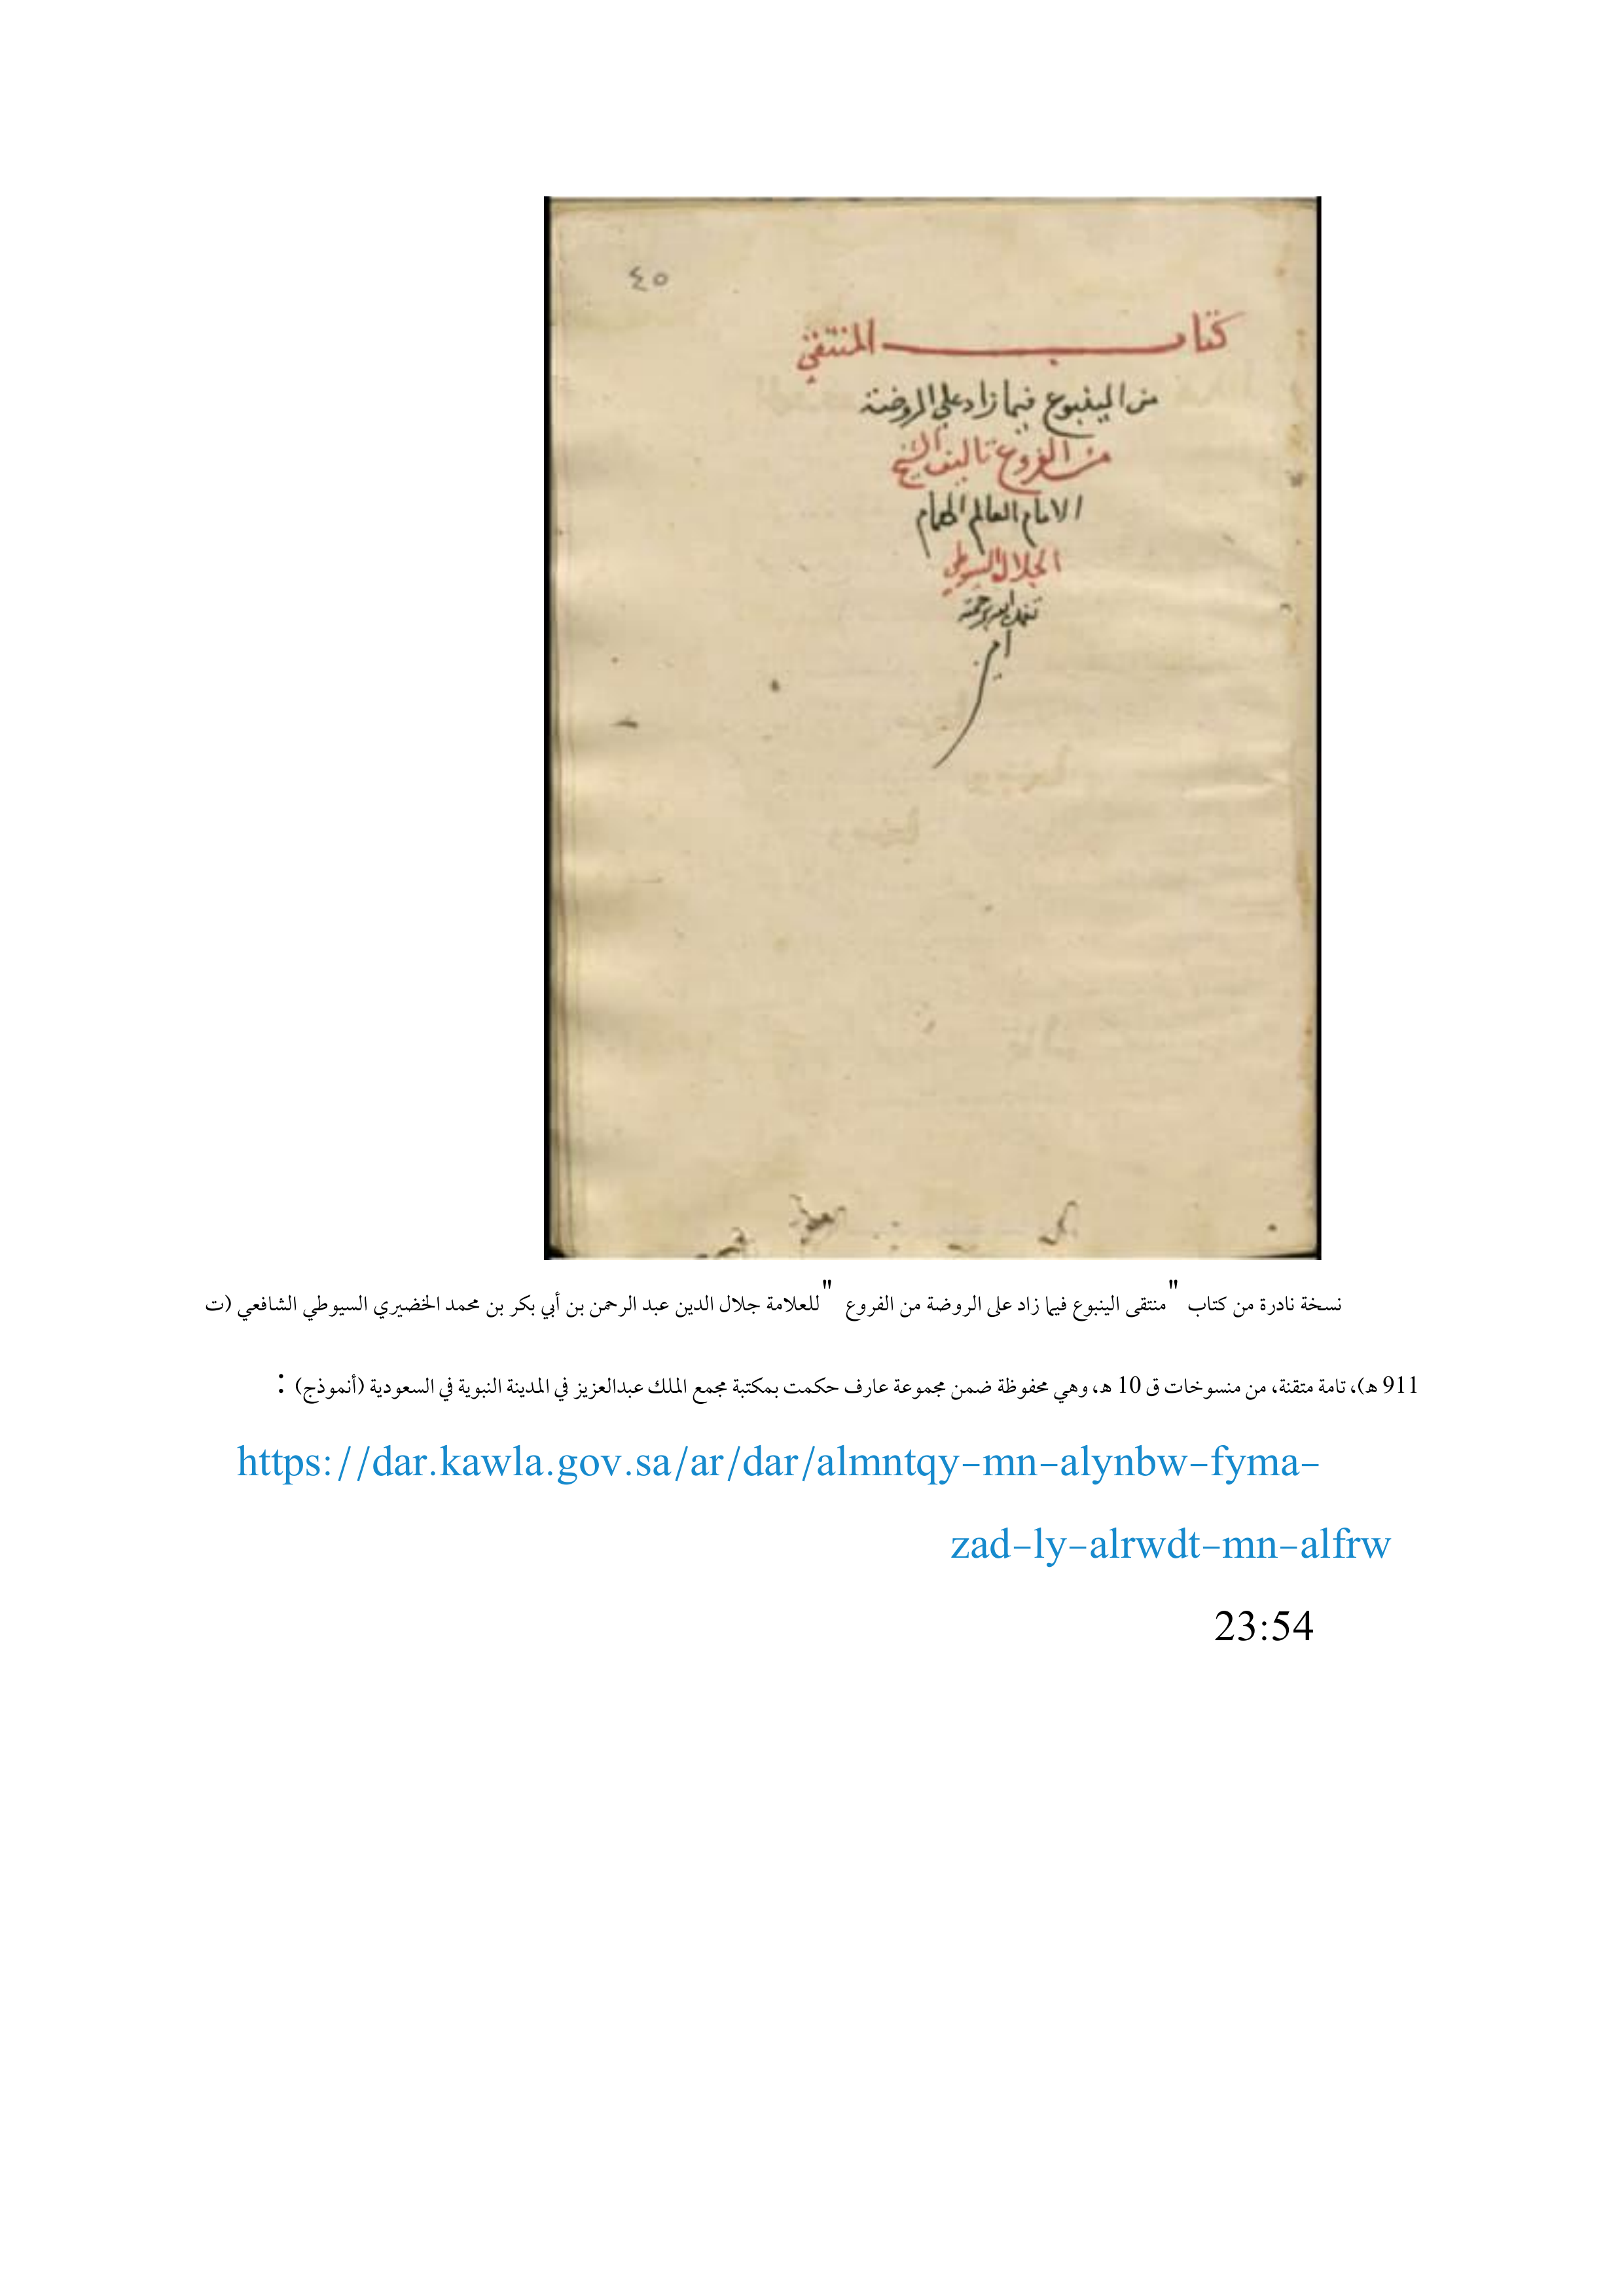 ٤٥
كتاب المنتقى
من الينبوع فيما زاد على الروضة
من الفروع تاليف الشيخ
الامام العالم الهمام
الجلال السيوطي
تغمده الله برحمته
امين
نسخة نادرة من كتاب "منتقى الينبوع فيما زاد على الروضة من الفروع "للعلامة جلال الدين عبد الرحمن بن أبي بكر بن محمد الخضيري السيوطي الشافعي (ت
911 هـ)، تامة متقنة، من منسوخات ق 10 هـ، وهي محفوظة ضمن مجموعة عارف حكمت بمكتبة مجمع الملك عبدالعزيز في المدينة النبوية في السعودية (أنموذج) :
https://dar.kawla.gov.sa/ar/dar/almntqy-mn-alynbw-fyma-
zad-ly-alrwdt-mn-alfrw
23:54